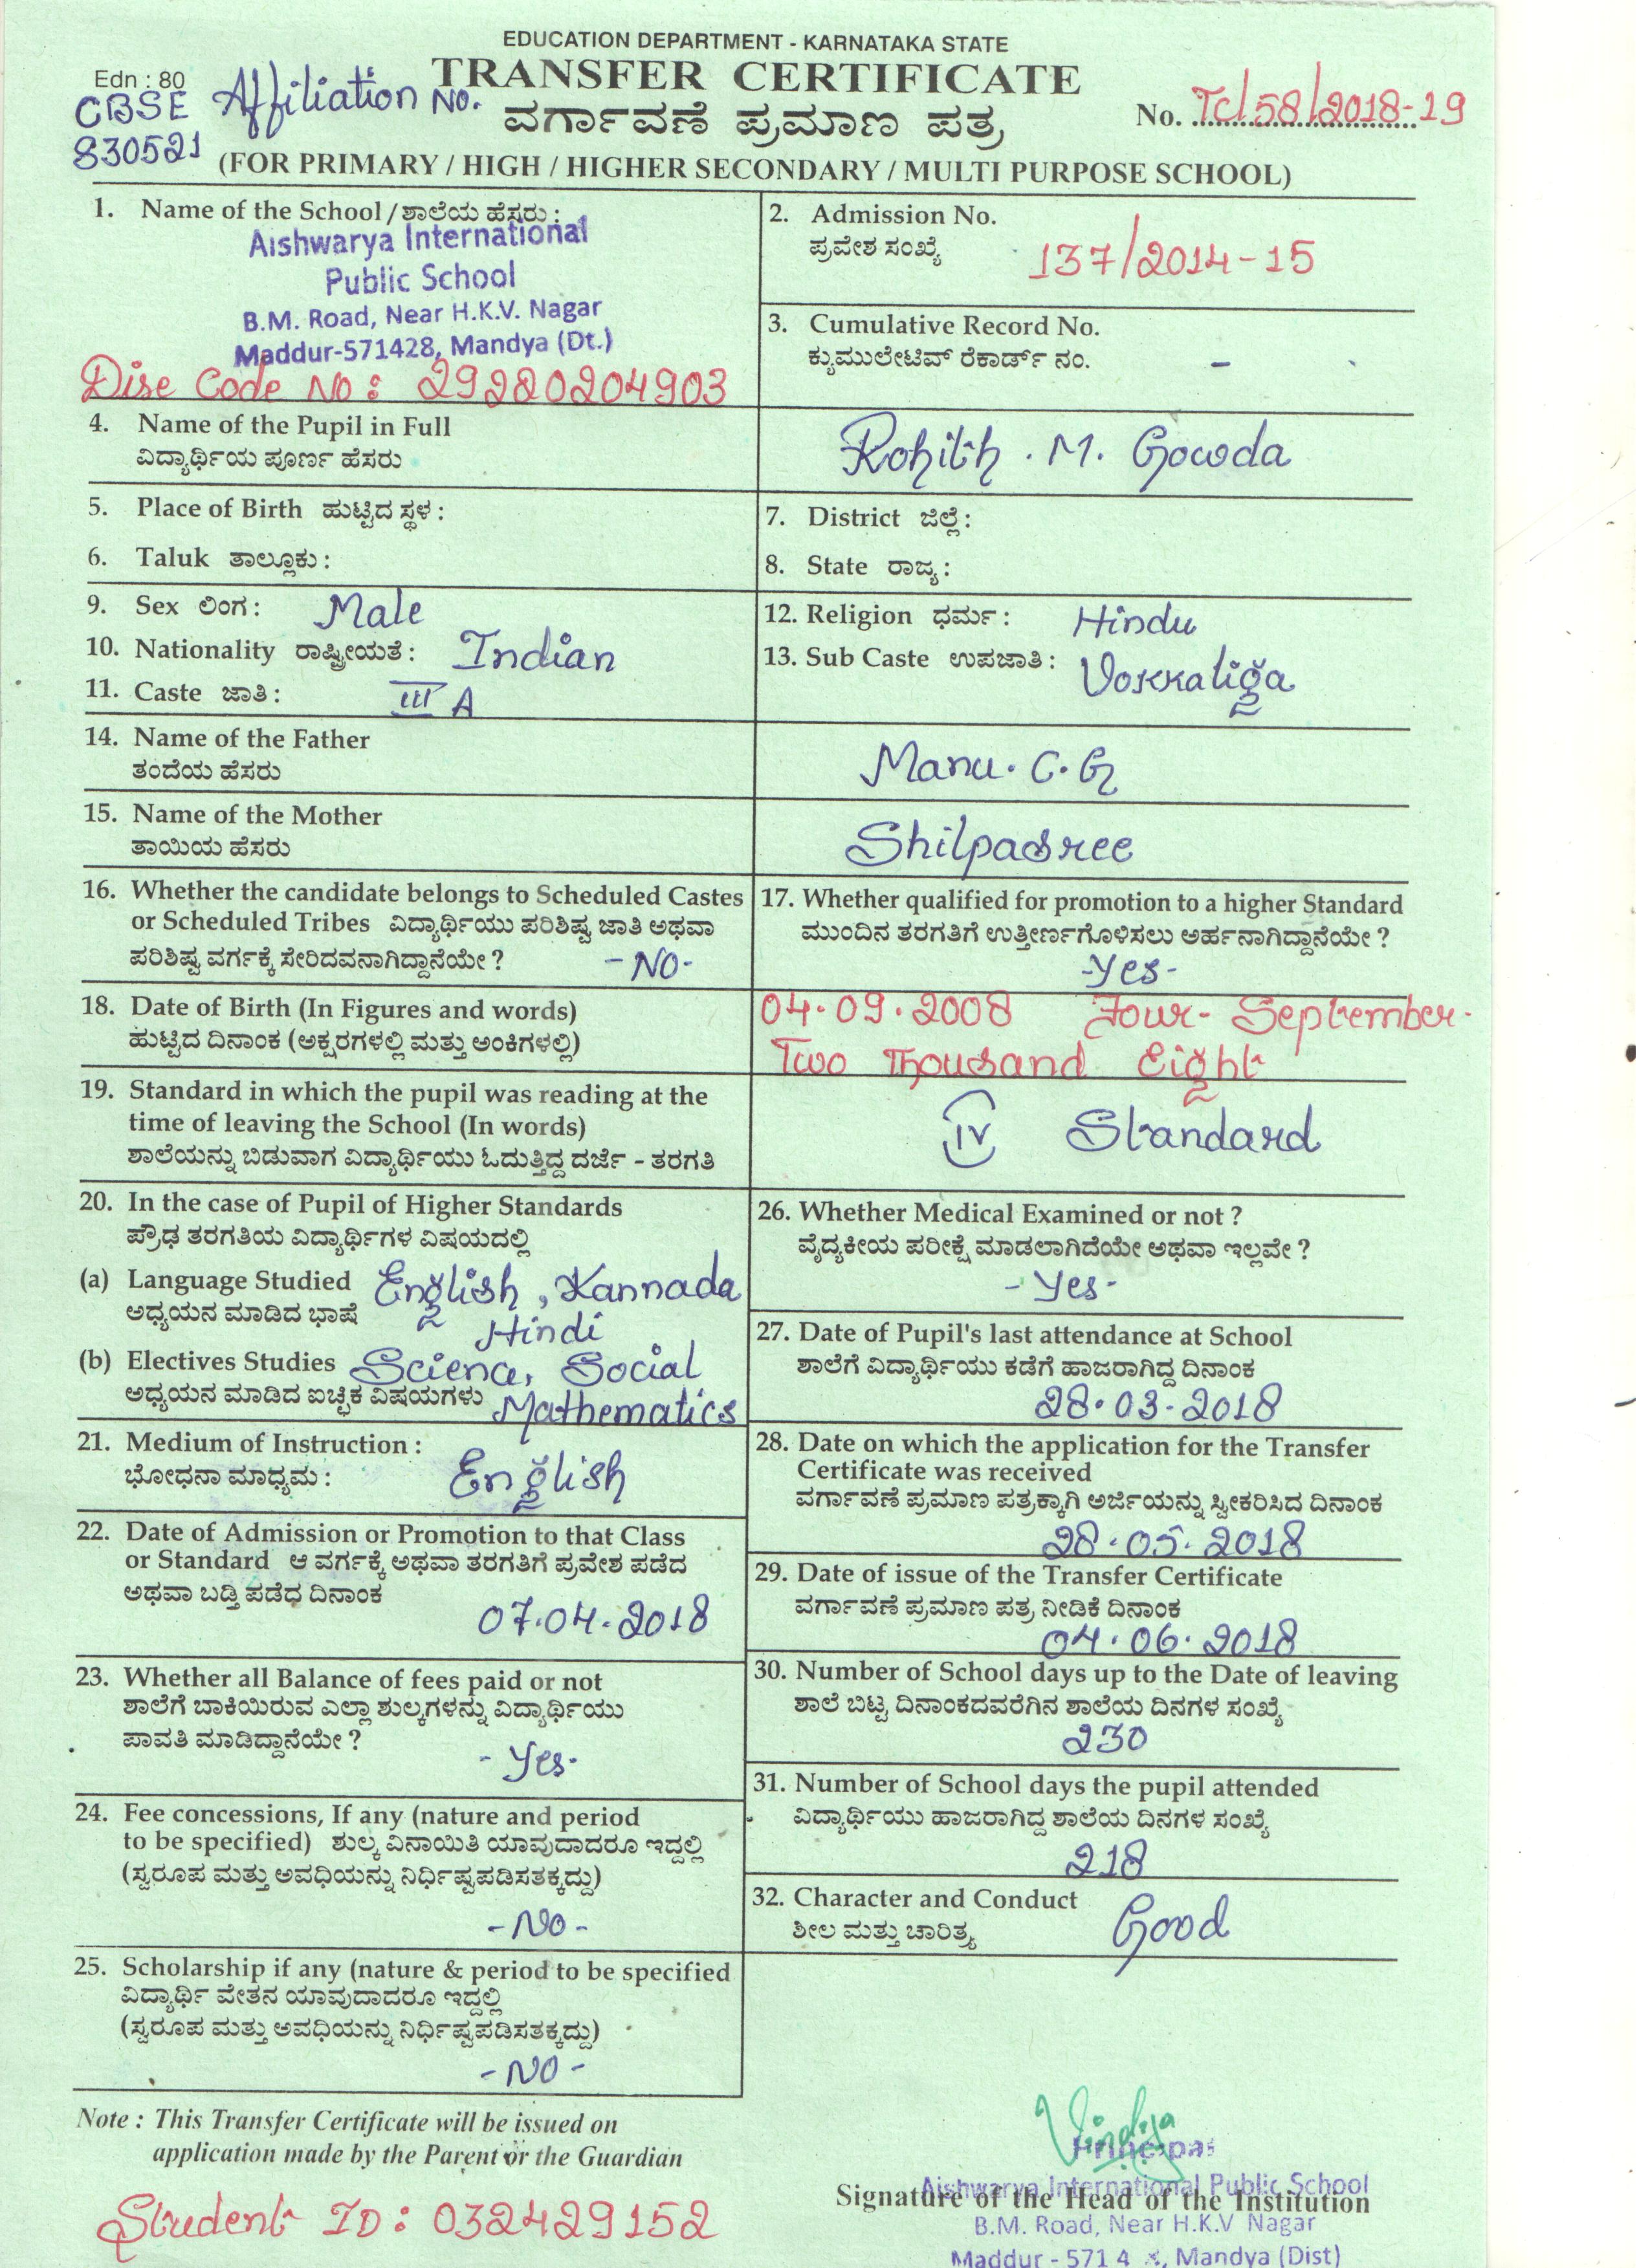 EDUCATION DEPARTMENT - KARNATAKA STATE
Edn : 80
TRANSFER CERTIFICATE
CBSE Affiliation No.
830521
ವರ್ಗಾವಣೆ ಪ್ರಮಾಣ ಪತ್ರ
No. TC/58/2018-19
(FOR PRIMARY / HIGH / HIGHER SECONDARY / MULTI PURPOSE SCHOOL)
1. Name of the School / ಶಾಲೆಯ ಹೆಸರು :
Aishwarya International
Public School
B.M. Road, Near H.K.V. Nagar
Maddur-571428, Mandya (Dt.)
Dise Code No : 29220204903
2. Admission No.
ಪ್ರವೇಶ ಸಂಖ್ಯೆ 137/2014-15
3. Cumulative Record No.
ಕ್ಯುಮುಲೇಟಿವ್ ರೆಕಾರ್ಡ್ ನಂ. -
4. Name of the Pupil in Full
ವಿದ್ಯಾರ್ಥಿಯ ಪೂರ್ಣ ಹೆಸರು
Rohith . M. Gowda
5. Place of Birth ಹುಟ್ಟಿದ ಸ್ಥಳ :
6. Taluk ತಾಲ್ಲೂಕು :
7. District ಜಿಲ್ಲೆ :
8. State ರಾಜ್ಯ :
9. Sex ಲಿಂಗ : Male
10. Nationality ರಾಷ್ಟ್ರೀಯತೆ : Indian
11. Caste ಜಾತಿ : III A
12. Religion ಧರ್ಮ : Hindu
13. Sub Caste ಉಪಜಾತಿ : Vokkaliga
14. Name of the Father
ತಂದೆಯ ಹೆಸರು
Manu. C. G
15. Name of the Mother
ತಾಯಿಯ ಹೆಸರು
Shilpasree
16. Whether the candidate belongs to Scheduled Castes
or Scheduled Tribes ವಿದ್ಯಾರ್ಥಿಯು ಪರಿಶಿಷ್ಟ ಜಾತಿ ಅಥವಾ
ಪರಿಶಿಷ್ಟ ವರ್ಗಕ್ಕೆ ಸೇರಿದವನಾಗಿದ್ದಾನೆಯೇ ? -NO-
17. Whether qualified for promotion to a higher Standard
ಮುಂದಿನ ತರಗತಿಗೆ ಉತ್ತೀರ್ಣಗೊಳಿಸಲು ಅರ್ಹನಾಗಿದ್ದಾನೆಯೇ ?
-Yes-
18. Date of Birth (In Figures and words)
ಹುಟ್ಟಿದ ದಿನಾಂಕ (ಅಕ್ಷರಗಳಲ್ಲಿ ಮತ್ತು ಅಂಕಿಗಳಲ್ಲಿ)
04.09.2008 Four- September-
Two Thousand Eight
19. Standard in which the pupil was reading at the
time of leaving the School (In words)
ಶಾಲೆಯನ್ನು ಬಿಡುವಾಗ ವಿದ್ಯಾರ್ಥಿಯು ಓದುತ್ತಿದ್ದ ದರ್ಜೆ - ತರಗತಿ
IV Standard
20. In the case of Pupil of Higher Standards
ಪ್ರೌಢ ತರಗತಿಯ ವಿದ್ಯಾರ್ಥಿಗಳ ವಿಷಯದಲ್ಲಿ
(a) Language Studied English, Kannada
ಅಧ್ಯಯನ ಮಾಡಿದ ಭಾಷೆ Hindi
(b) Electives Studies Science, Social
ಅಧ್ಯಯನ ಮಾಡಿದ ಐಚ್ಛಿಕ ವಿಷಯಗಳು Mathematics
21. Medium of Instruction :
ಭೋಧನಾ ಮಾಧ್ಯಮ : English
22. Date of Admission or Promotion to that Class
or Standard ಆ ವರ್ಗಕ್ಕೆ ಅಥವಾ ತರಗತಿಗೆ ಪ್ರವೇಶ ಪಡೆದ
ಅಥವಾ ಬಡ್ತಿ ಪಡೆಧ ದಿನಾಂಕ
07.04.2018
23. Whether all Balance of fees paid or not
ಶಾಲೆಗೆ ಬಾಕಿಯಿರುವ ಎಲ್ಲಾ ಶುಲ್ಕಗಳನ್ನು ವಿದ್ಯಾರ್ಥಿಯು
ಪಾವತಿ ಮಾಡಿದ್ದಾನೆಯೇ ?
-Yes-
24. Fee concessions, If any (nature and period
to be specified) ಶುಲ್ಕ ವಿನಾಯಿತಿ ಯಾವುದಾದರೂ ಇದ್ದಲ್ಲಿ
(ಸ್ವರೂಪ ಮತ್ತು ಅವಧಿಯನ್ನು ನಿರ್ಧಿಷ್ಟಪಡಿಸತಕ್ಕದ್ದು)
-NO-
25. Scholarship if any (nature & period to be specified
ವಿದ್ಯಾರ್ಥಿ ವೇತನ ಯಾವುದಾದರೂ ಇದ್ದಲ್ಲಿ
(ಸ್ವರೂಪ ಮತ್ತು ಅವಧಿಯನ್ನು ನಿರ್ಧಿಷ್ಟಪಡಿಸತಕ್ಕದ್ದು)
-NO-
26. Whether Medical Examined or not ?
ವೈದ್ಯಕೀಯ ಪರೀಕ್ಷೆ ಮಾಡಲಾಗಿದೆಯೇ ಅಥವಾ ಇಲ್ಲವೇ ?
-Yes-
27. Date of Pupil's last attendance at School
ಶಾಲೆಗೆ ವಿದ್ಯಾರ್ಥಿಯು ಕಡೆಗೆ ಹಾಜರಾಗಿದ್ದ ದಿನಾಂಕ
28.03.2018
28. Date on which the application for the Transfer
Certificate was received
ವರ್ಗಾವಣೆ ಪ್ರಮಾಣ ಪತ್ರಕ್ಕಾಗಿ ಅರ್ಜಿಯನ್ನು ಸ್ವೀಕರಿಸಿದ ದಿನಾಂಕ
28.05.2018
29. Date of issue of the Transfer Certificate
ವರ್ಗಾವಣೆ ಪ್ರಮಾಣ ಪತ್ರ ನೀಡಿಕೆ ದಿನಾಂಕ
04.06.2018
30. Number of School days up to the Date of leaving
ಶಾಲೆ ಬಿಟ್ಟ ದಿನಾಂಕದವರೆಗಿನ ಶಾಲೆಯ ದಿನಗಳ ಸಂಖ್ಯೆ
230
31. Number of School days the pupil attended
ವಿದ್ಯಾರ್ಥಿಯು ಹಾಜರಾಗಿದ್ದ ಶಾಲೆಯ ದಿನಗಳ ಸಂಖ್ಯೆ
218
32. Character and Conduct
ಶೀಲ ಮತ್ತು ಚಾರಿತ್ರ್ಯ Good
Note : This Transfer Certificate will be issued on
application made by the Parent or the Guardian
Student ID: 032429152
Vindiya
Aishwarya International Public School
Signature of the Head of the Institution
B.M. Road, Near H.K.V Nagar
Maddur - 571 4, Mandya (Dist)